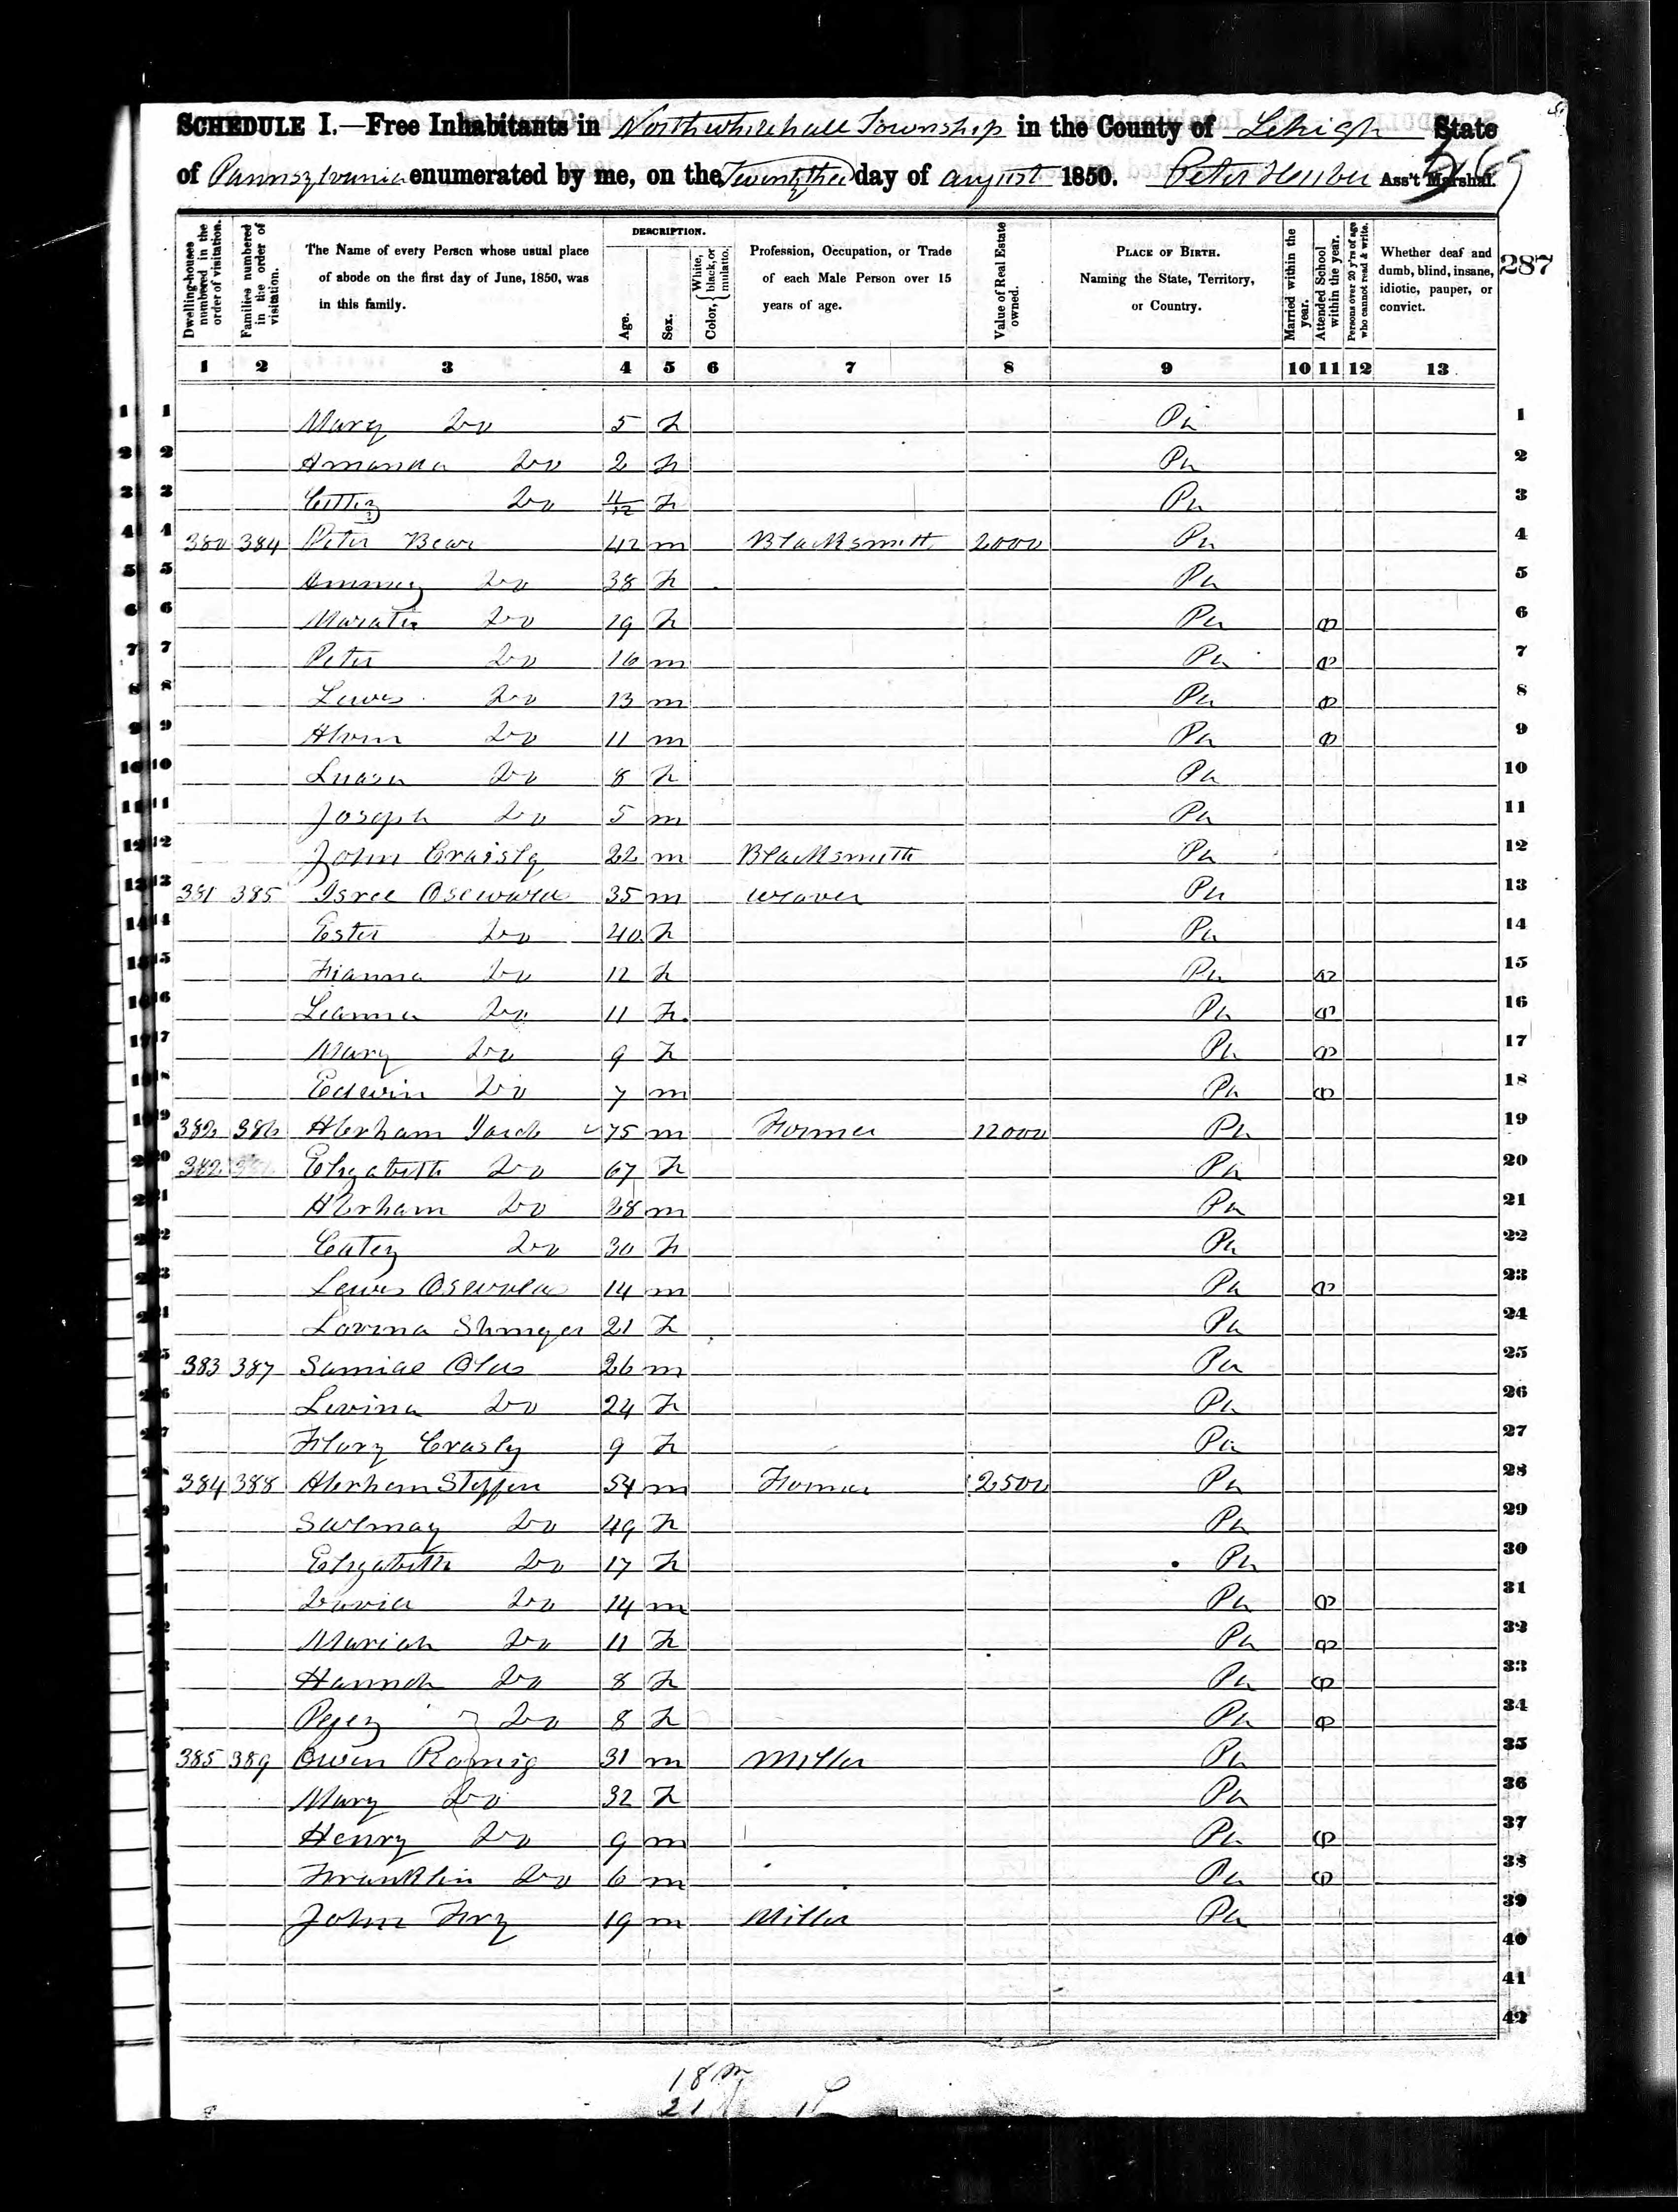 SCHEDULE I.—Free Inhabitants in Northwhitehall Township in the County of Lehigh State
of Pannszlvania enumerated by me, on the Twentythee day of august 1850. Peter Ass't Marshal.
287
Dwelling-houses numbered in the order of visitation.
Families numbered in the order of visitation.
The Name of every Person whose usual place of abode on the first day of June, 1850, was in this family.
DESCRIPTION.
Age.
Sex.
Color, { White, black, or mulatto.
Profession, Occupation, or Trade of each Male Person over 15 years of age.
Value of Real Estate owned.
PLACE OF BIRTH. Naming the State, Territory, or Country.
Married within the year.
Attended School within the year.
Persons over 20 y'rs of age who cannot read & write.
Whether deaf and dumb, blind, insane, idiotic, pauper, or convict.
1 2 3 4 5 6 7 8 9 10 11 12 13
1 Mary Do 5 F Pa 1
2 Amanda Do 2 F Pa 2
3 Do 11/12 F Pa 3
4 380 384 Peter Bear 42 m Blacksmith 2000 Pa 4
5 Do 38 F Pa 5
6 Do 19 F Pa 6
7 Peter Do 16 m Pa 7
8 Lewis Do 13 m Pa 8
9 Alvin Do 11 m Pa 9
10 Do 8 F Pa 10
11 Joseph Do 5 m Pa 11
12 John Craisly 22 m Blacksmith Pa 12
13 381 385 Isree Oseward 35 m weaver Pa 13
14 Ester Do 40 F Pa 14
15 Fianna Do 12 F Pa 15
16 Leanna Do 11 F Pa 16
17 Mary Do 9 F Pa 17
18 Edwin Do 7 m Pa 18
19 382 386 Abrham 75 m Farmer 12000 Pa 19
20 382 Elizabeth Do 67 F Pa 20
21 Abrham Do 28 m Pa 21
22 Catey Do 30 F Pa 22
23 Lewis 14 m Pa 23
24 Lovina 21 F Pa 24
25 383 387 26 m Pa 25
26 Levina Do 24 F Pa 26
27 Crasly 9 F Pa 27
28 384 388 Abrham Steffen 54 m Farmer 2500 Pa 28
29 Do 49 F Pa 29
30 Elizabeth Do 17 F Pa 30
31 David Do 14 m Pa 31
32 Mariah Do 11 F Pa 32
33 Hannah Do 8 F Pa 33
34 Do 8 F Pa 34
35 385 389 Owen Romig 31 m Miller Pa 35
36 Mary Do 32 F Pa 36
37 Henry Do 9 m Pa 37
38 Franklin Do 6 m Pa 38
39 John Fry 19 m Miller Pa 39
40
41
42
18 m
21